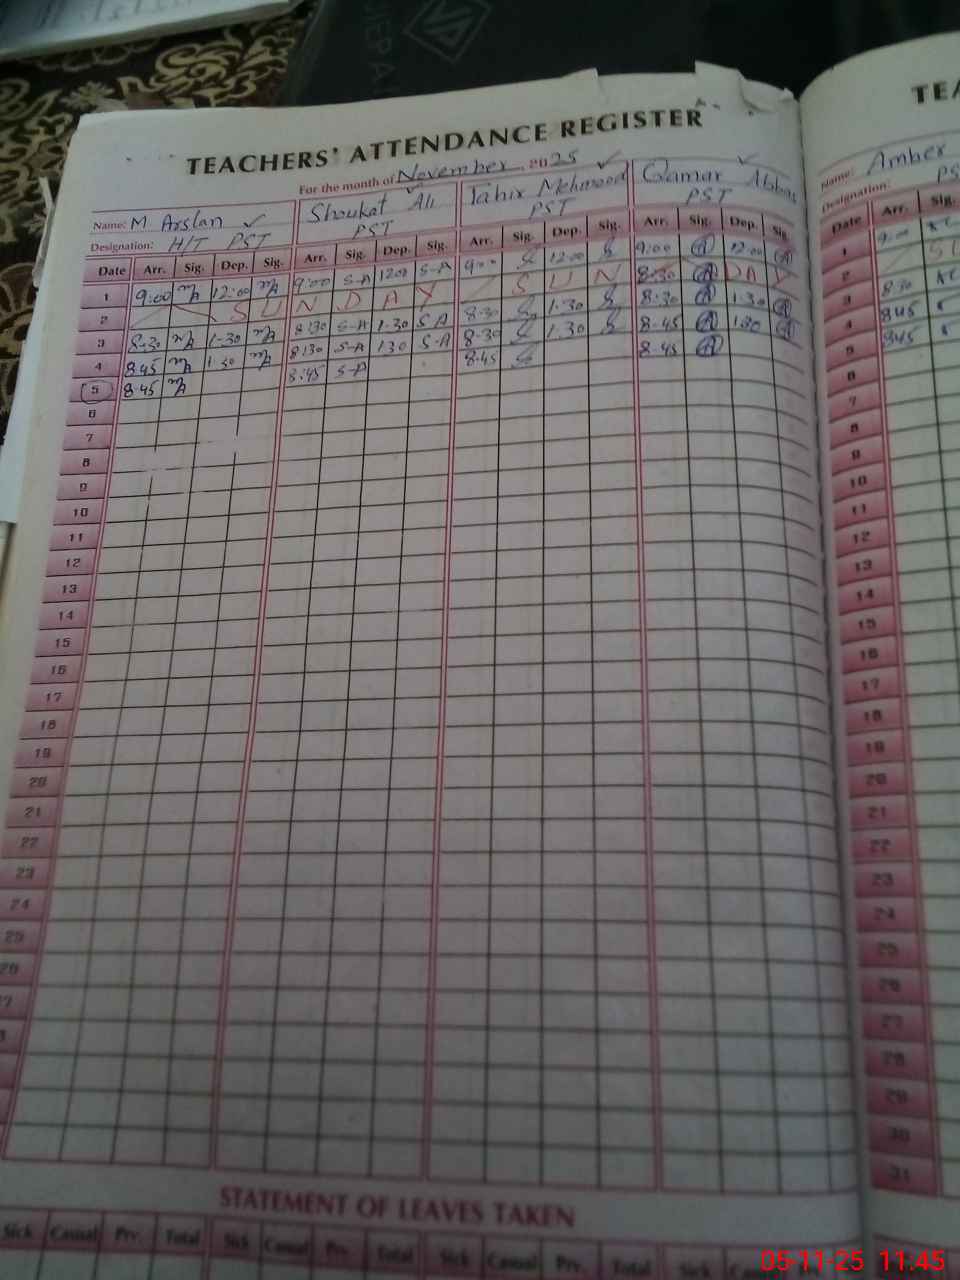 TEACHERS' ATTENDANCE REGISTER
For the month of November 2025
Name: M Arslan Shoukat Ali Tahir Mehmood Qamar Abbas
Designation: H/T PST PST PST PST
Date Arr. Sig. Dep. Sig. Arr. Sig. Dep. Sig. Arr. Sig. Dep. Sig. Arr. Sig. Dep. Sig.
1 9:00 12:00 9:00 S-A 12:00 S-A 9:00 12:00 9:00 12:00
2 SUNDAY SUN DAY
3 8:30 1:30 8:30 S-A 1:30 S-A 8:30 1:30 8:30 1:30
4 8:45 1:30 8:30 S-A 1:30 S-A 8:30 1:30 8:45 1:30
5 8:45 8:45 S-A 8:45 8:45
6
7
8
9
10
11
12
13
14
15
16
17
18
19
20
21
22
23
24
25
STATEMENT OF LEAVES TAKEN
Sick Casual Prv. Total Sick Casual Prv. Total Sick Casual Prv. Total Sick
Name: Amber
Designation: PS
Date Arr. Sig.
1 9:00
2
3 8:30
4 8:45
5 8:45
6
7
8
9
10
11
12
13
14
15
16
17
18
19
20
21
22
23
24
25
26
27
28
29
30
31
05-11-25 11:45